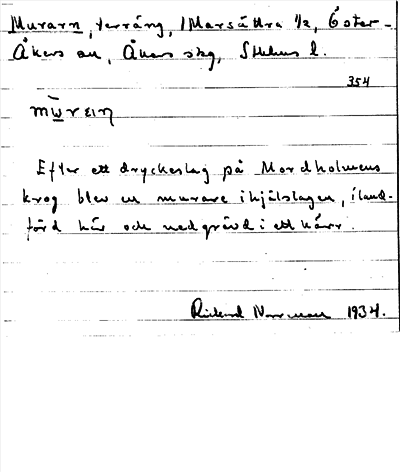 Murarn, terräng, 1 Marsättra 1/2, Öster-
Åkers sn, Åkers skg, Sthlms l.
354
mw̄rεıꞃ
Efter ett dryckeslag på Mordholmens
krog blev en murare ihjälslagen, iland-
förd här och nedgrävd i ett kärr.
Rickard Norrman 1934.